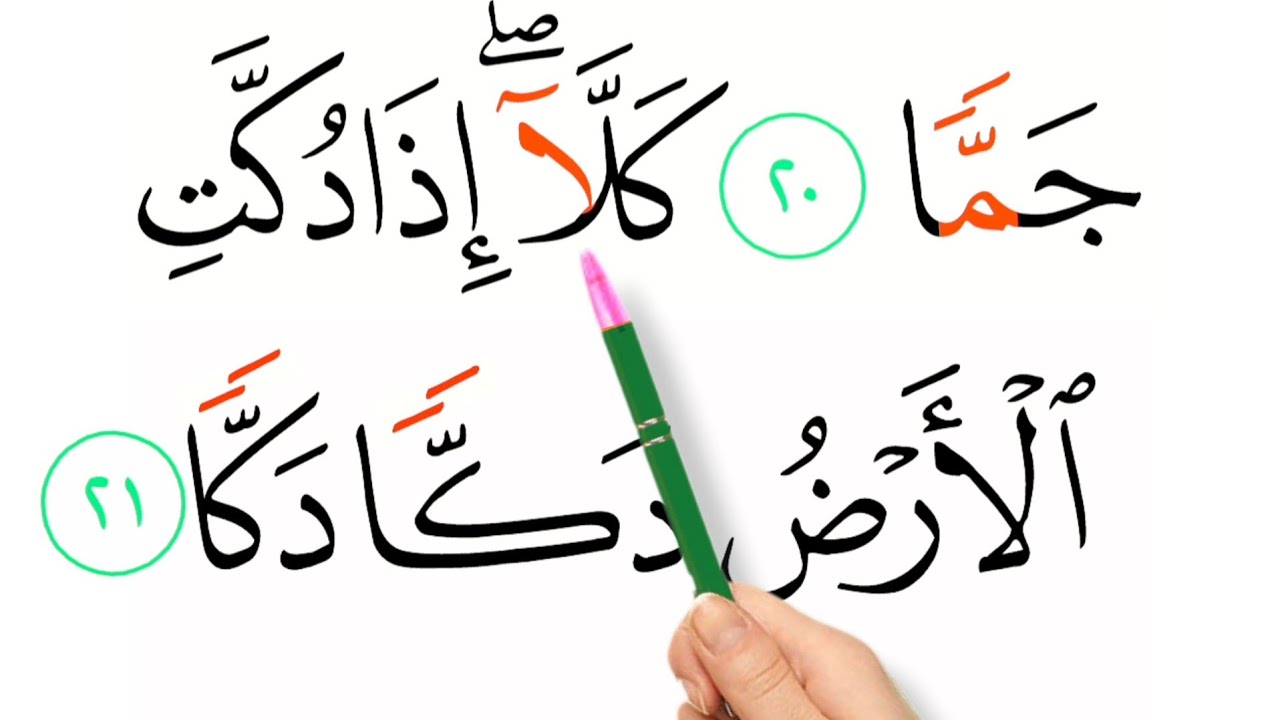 جَمًّا ٢٠ كَلَّآ ۖ إِذَا دُكَّتِ
ٱلْأَرْضُ دَكًّا دَكًّا ٢١